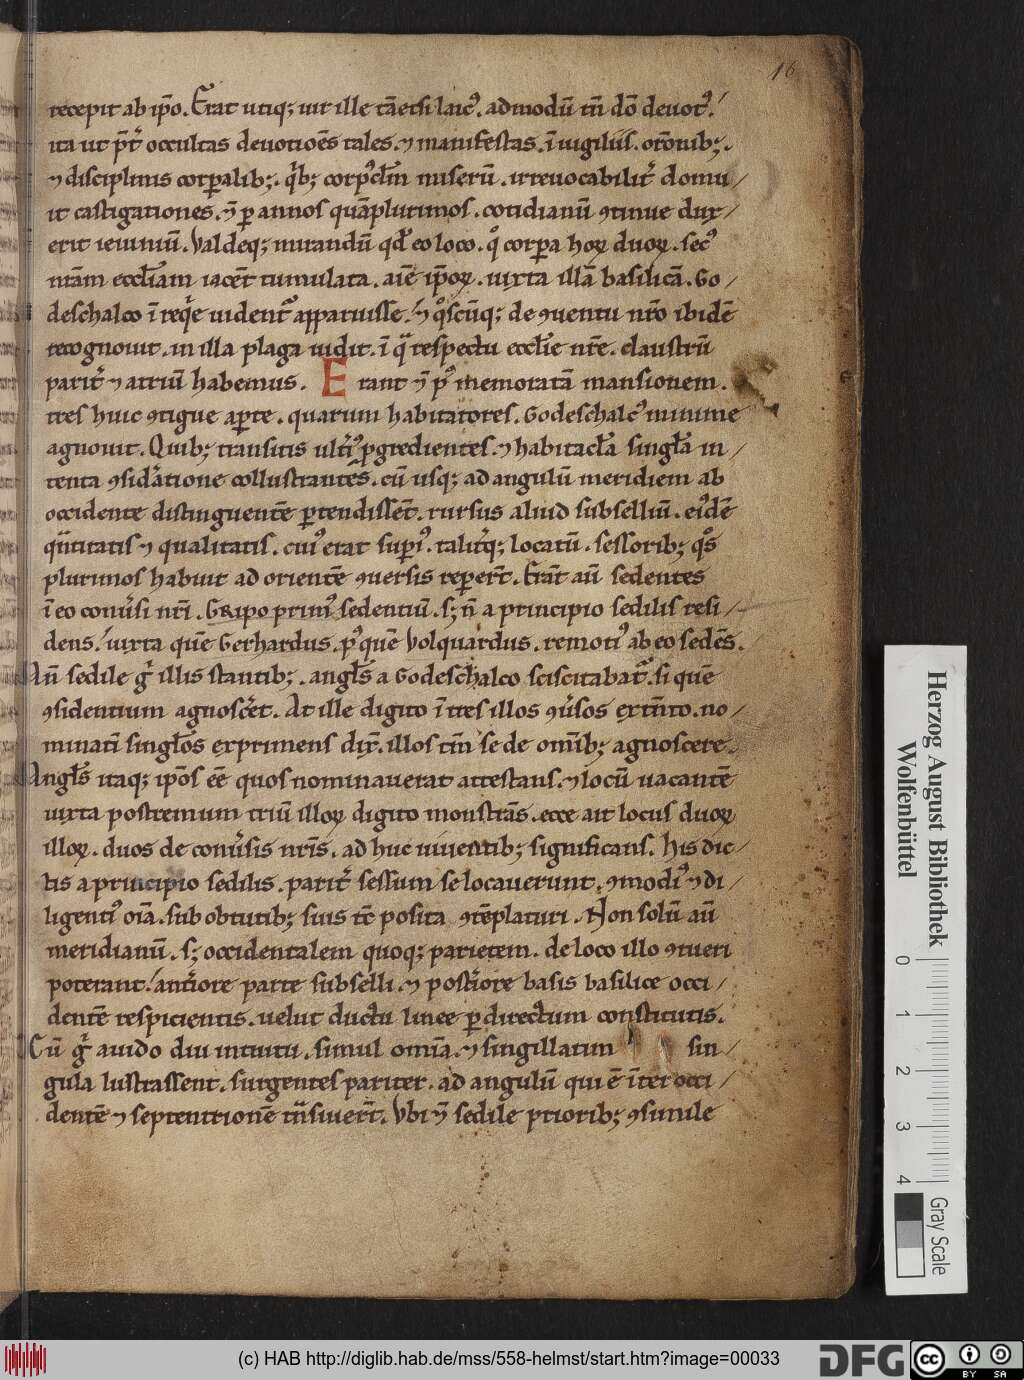 16
recepit ab ip̄o. Erat utiq; uir ille tām̄etsi laic᷒. admodū tn̄ dō deuot᷒.
ita ut p̄t̓ occultas deuotioēs tales. ⁊ manifestas. ī uigiliis. or̄onib;.
⁊ disciplinis corꝑalib;. q̓b; corp᷒cl̄m miserū. irreuocabilit̓ domu/
it castigationes. ⁊ ꝑ annos quāplurimos. cotidianū ꝯtinue dux/
erit ieiuniū. Valdeq; mirandū qd̄ eo loco. q̊ corꝑa hoꝝ duoꝝ. sec᷒
ntām eccl̄iam iacēt tumulata. aīe ip̄oꝝ. iuxta illā basilicā. Go/
deschalco ī req̓e uident᷒ apparuisse. ⁊ q̊scūq; de ꝯuentu nr̄o ibidē
recognouit. in illa plaga uidit. ī q̄ respectu eccl̄ie nr̄e. claustrū
parit̓ ⁊ atriū habemus. Erant ⁊ p᷒ memoratā mansionem.
tres huic ꝯtigue aꝑte. quarum habitatores. Godeschalc᷒ minime
agnouit. Quib; transitis ult̓i᷒ ꝓgredientes. ⁊ habitacl̄a singl̄a in/
tenta ꝯsid̓atione collustrantes. cū usq; ad angulū meridiem ab
occidente distinguentē ꝑtendissēt. rursus aliud subselliū. ei᷒dē
q̄ntitatis ⁊ qualitatis. cui᷒ erat suꝑi᷒. talit̓q; locatū. sessorib; q̊s
plurimos habuit ad orientē ꝯuersis reꝑer̄t. Erāt aū sedentes
ī eo conu̓si nr̄i. Gripo prim᷒ sedentiū. s; n̄ a principio sedilis resi/
dens. iuxta quē Gerhardus. p᷒ quē Volquardus. remoti᷒ ab eo sedēs.
An̄ sedile g̓ illis stantib;. angl̄s a Godeschalco sciscitabat᷒. si quē
ꝯsidentium agnosc̓et. At ille digito ī tres illos ꝯu̓sos extēto. no/
minatī singl̄os exprimens dix̄. illos tm̄ se de om̄ib; agnoscere.
Angl̄s itaq; ip̄os ēē quos nominauerat attestans. ⁊ locū uacantē
iuxta postremum triū illoꝝ digito monstrās. ecce ait locus duoꝝ
illoꝝ. duos de conu̓sis nr̄is. ad huc uiuentib; significans. His dic/
tis a principio sedilis. parit̓ sessum se locauerunt. ꝯmodi᷒ ⁊ di/
ligenti᷒ oīa. sub obtutib; suis tc̄ posita ꝯtēplaturi. Non solū aū
meridianū. s; occidentalem quoq; parietem. de loco illo ꝯtueri
poterant. ant̓iore parte subselli. ⁊ post̓iore basis basilice occi/
dentē respicientis. uelut ductu linee ꝑ directum constitutis.
Cū g̓ auido diu intuitu. simul omīa. ⁊ singillatim sin/
gula lustrassent. surgentes pariter. ad angulū qui ē īter occi/
dentē ⁊ septentrionē tn̄siuer̄t. Vbi ⁊ sedile priorib; ꝯsimile
Herzog August Bibliothek
Wolfenbüttel
0 1 2 3 4
Gray Scale
(c) HAB http://diglib.hab.de/mss/558-helmst/start.htm?image=00033
DFG
cc BY SA